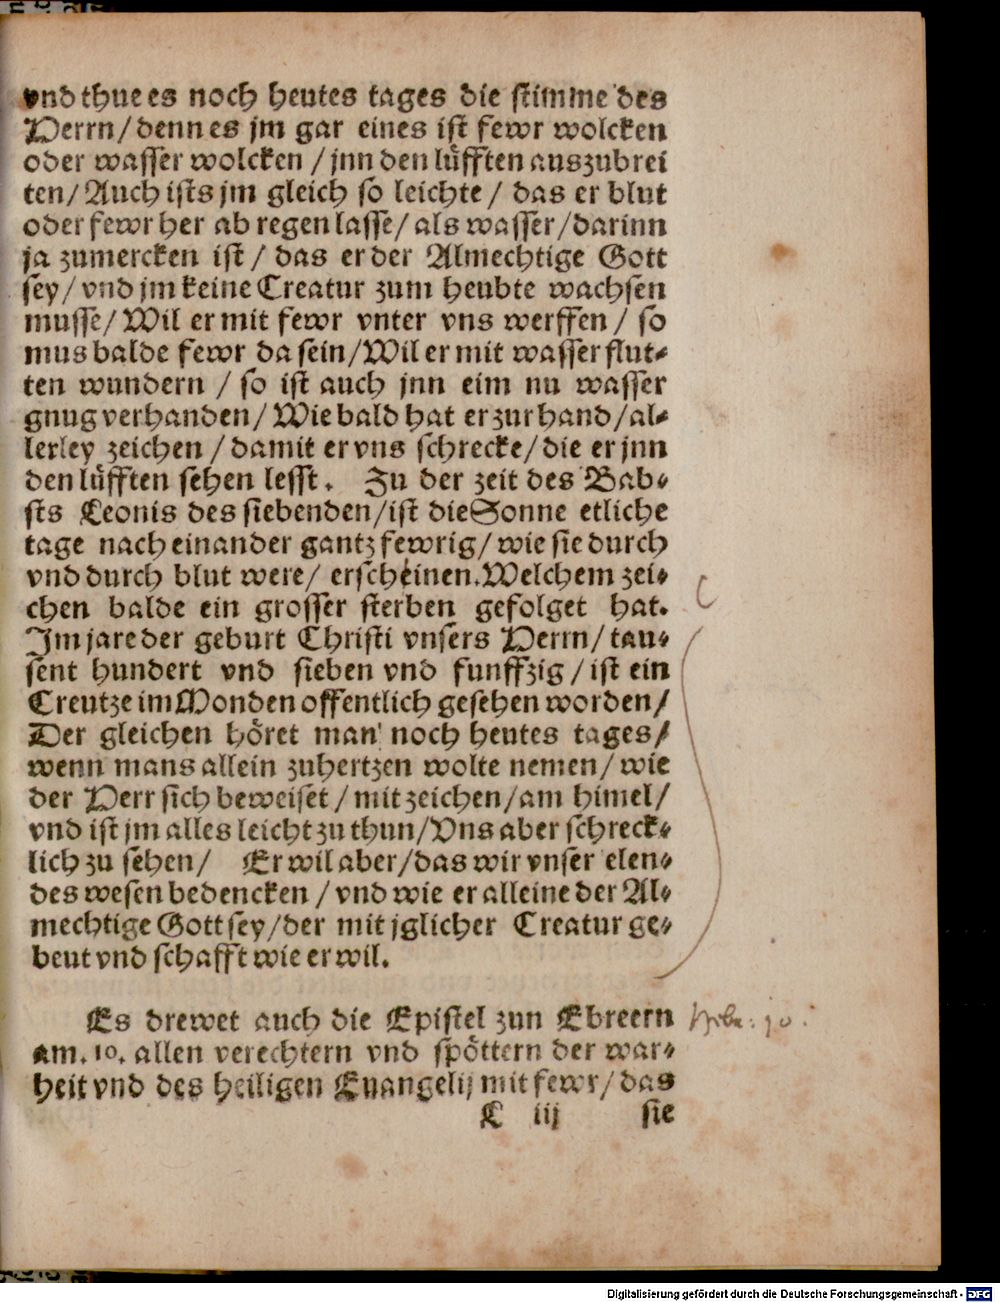 vnd thue es noch heutes tages die stimme des
Herrn/ denn es jm gar eines ist fewr wolcken
oder wasser wolcken / jnn den lüfften auszubrei
ten/ Auch ists jm gleich so leichte / das er blut
oder fewr her ab regen lasse/ als wasser/ darinn
ja zumercken ist / das er der Almechtige Gott
sey/ vnd jm keine Creatur zum heubte wachsen
musse/ Wil er mit fewr vnter vns werffen / so
mus balde fewr da sein/ Wil er mit wasser flut⸗
ten wundern / so ist auch jnn eim nu wasser
gnug verhanden/ Wie bald hat er zur hand/ al⸗
lerley zeichen / damit er vns schrecke/ die er jnn
den lüfften sehen lesst. Zu der zeit des Bab⸗
sts Leonis des siebenden/ ist die Sonne etliche
tage nach einander gantz fewrig/ wie sie durch
vnd durch blut were/ erscheinen. Welchem zei⸗
chen balde ein grosser sterben gefolget hat.
Im jare der geburt Christi vnsers Herrn/ tau⸗
sent hundert vnd sieben vnd funffzig / ist ein
Creutze im Monden offentlich gesehen worden/
Der gleichen höret man noch heutes tages/
wenn mans allein zuhertzen wolte nemen/ wie
der Herr sich beweiset / mit zeichen/ am himel/
vnd ist jm alles leicht zu thun/ Vns aber schreck⸗
lich zu sehen/ Er wil aber/ das wir vnser elen⸗
des wesen bedencken / vnd wie er alleine der Al⸗
mechtige Gott sey/ der mit jglicher Creatur ge⸗
beut vnd schafft wie er wil.
Es drewet auch die Epistel zun Ebreern
am. 10. allen verechtern vnd spöttern der war⸗
heit vnd des heiligen Euangelij mit fewr/ das
C iij sie
Hebr: 10.
Digitalisierung gefördert durch die Deutsche Forschungsgemeinschaft - DFG